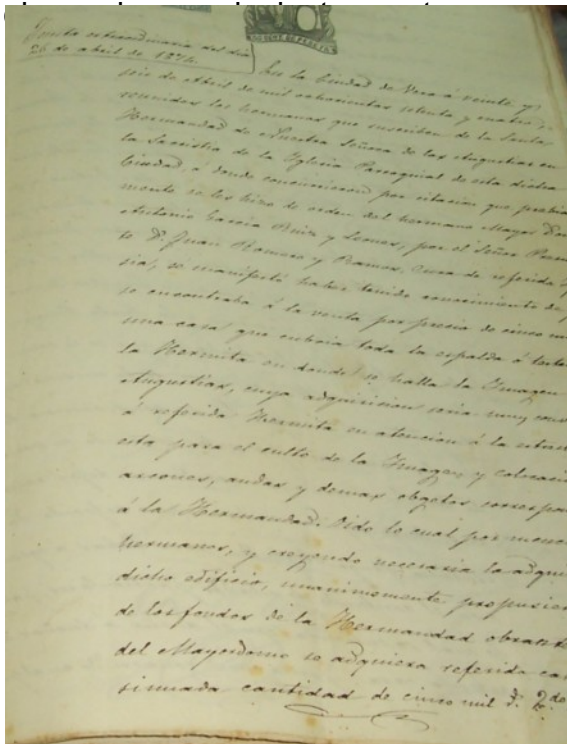 Junta extraordinaria del dia
26 de abril de 1874.
En la Ciudad de Vera á veinte y
seis de Abril de mil ochocientos setenta y cuatro,
reunidos los hermanos que suscriben de la Santa
Hermandad de Nuestra Señora de las Angustias en
la Sacristia de la Yglesia Parroquial de esta dicha
Ciudad, á donde concurrieron por citacion que
mente se les hizo de orden del hermano Mayor Don
Antonio Garcia Ruiz y Lemos, por el Señor
te D. Juan Romero y Ramos, Cura de referida
sia, se manifestó haber tenido conocimiento de
se encontraba á la venta por precio de cinco
una casa que cubria toda la espalda ó
la Hermita en donde se halla la Ymagen
Angustias, cuya adquisicion seria muy
á referida Hermita en atencion á la
esta para el culto de la Ymagen y
arcones, andas y demas obgetos
á la Hermandad. Oido lo cual por
hermanos, y creyendo necesaria la
dicho edificio, unanimemente
de los fondos de la Hermandad
del Mayordomo se adquiera referida
sinuada cantidad de cinco mil